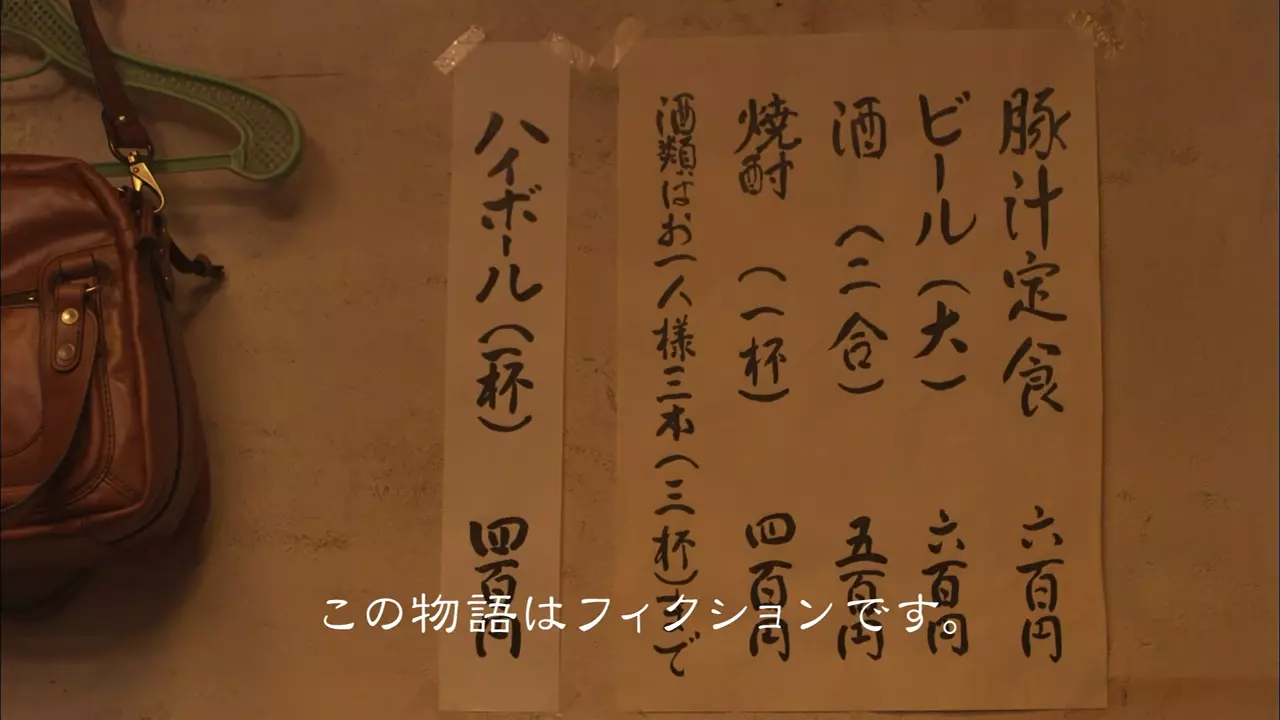 豚汁定食 六百円
ビール(大) 六百円
酒 (二合) 五百円
焼酎 (一杯) 四百円
酒類はお一人様三本(三杯)まで
ハイボール(一杯) 四百円
この物語はフィクションです。